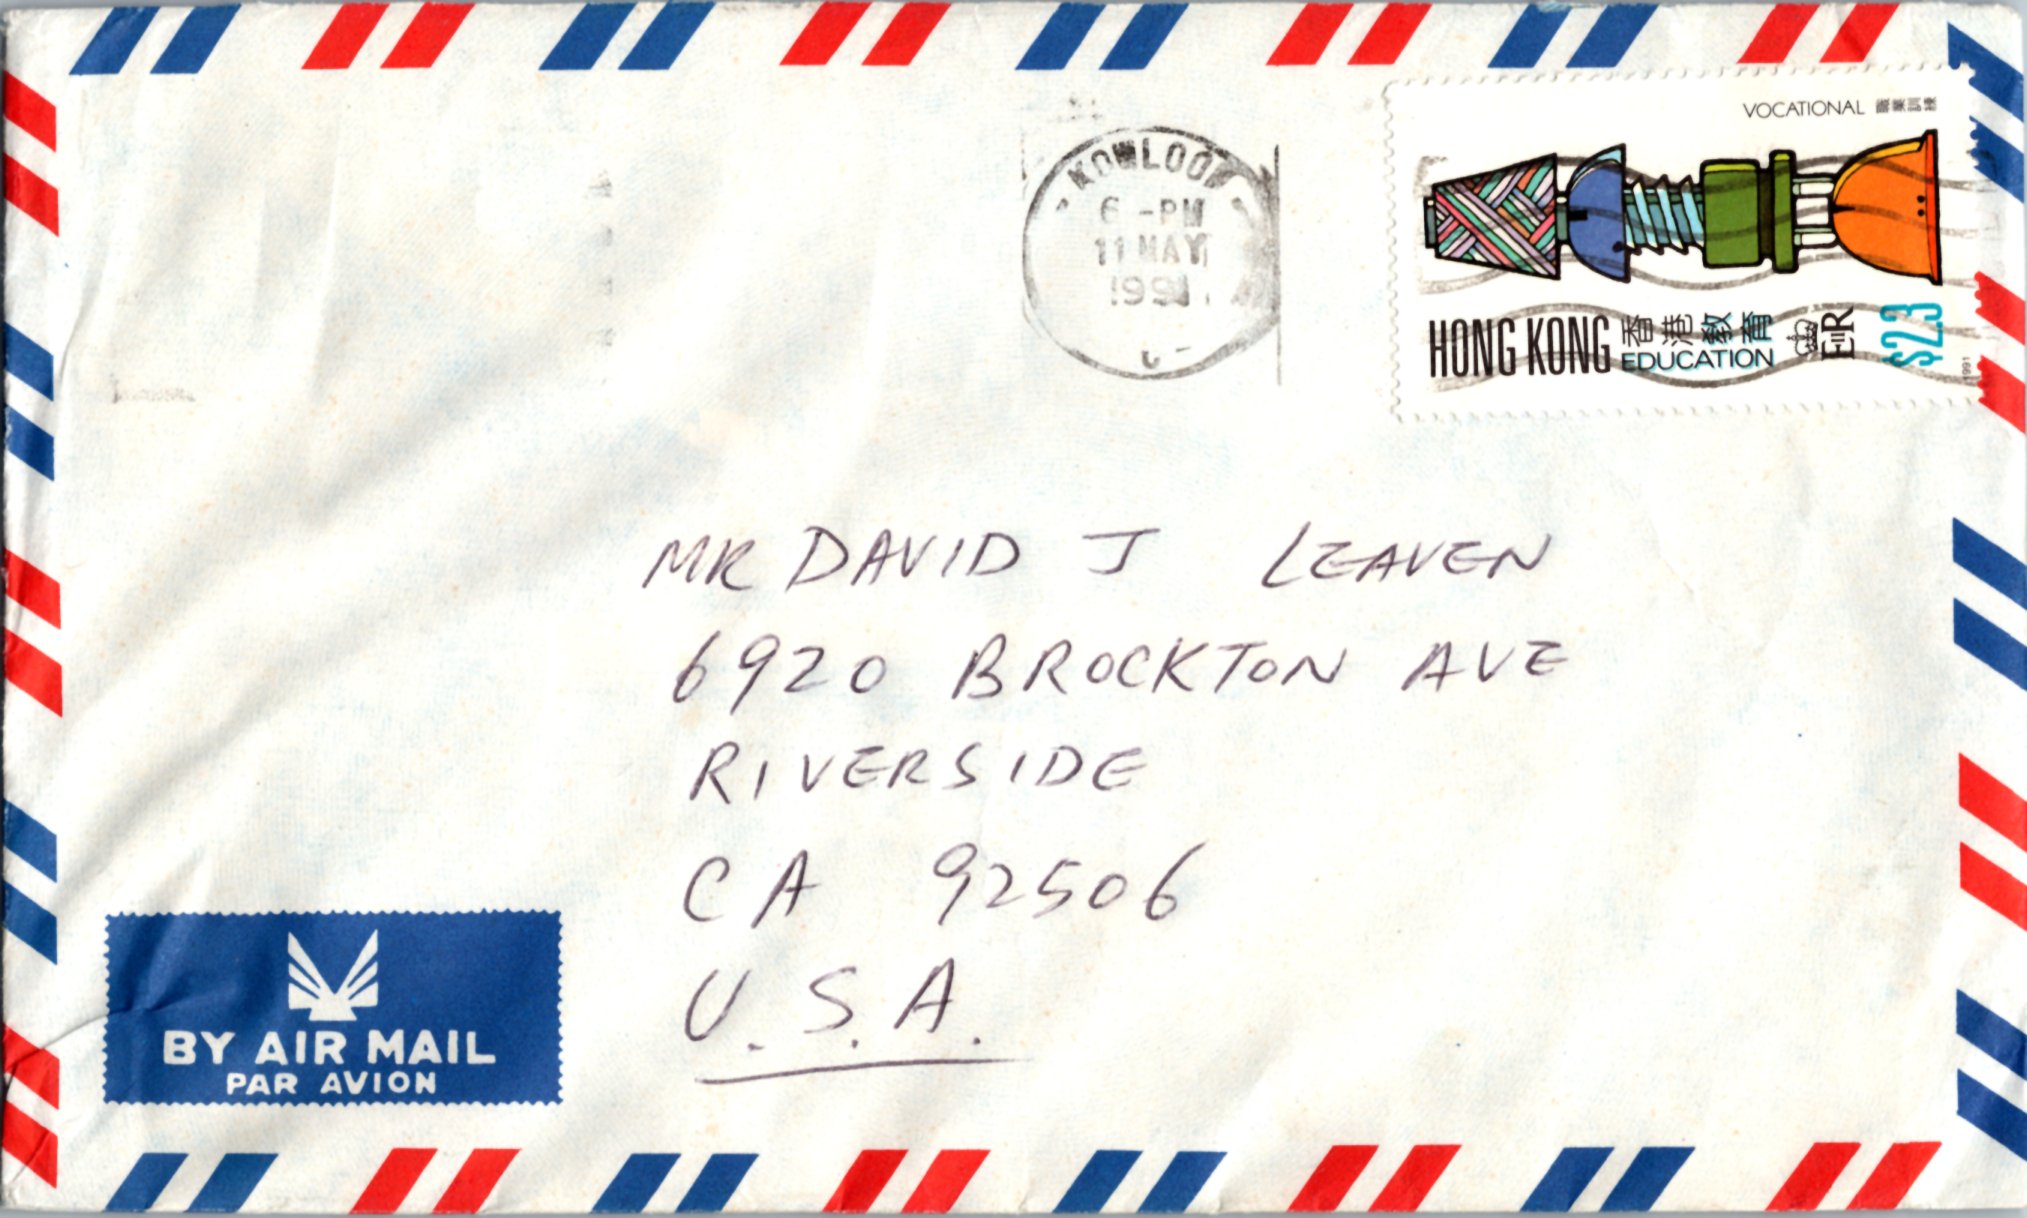 KOWLOON
6 -PM
11 MAY
1991
VOCATIONAL 職業訓練
HONG KONG 香港教育
EDUCATION
EIIR
$2.3
1991
MR DAVID J LEAVEN
6920 BROCKTON AVE
RIVERSIDE
CA 92506
U.S.A.
BY AIR MAIL
PAR AVION